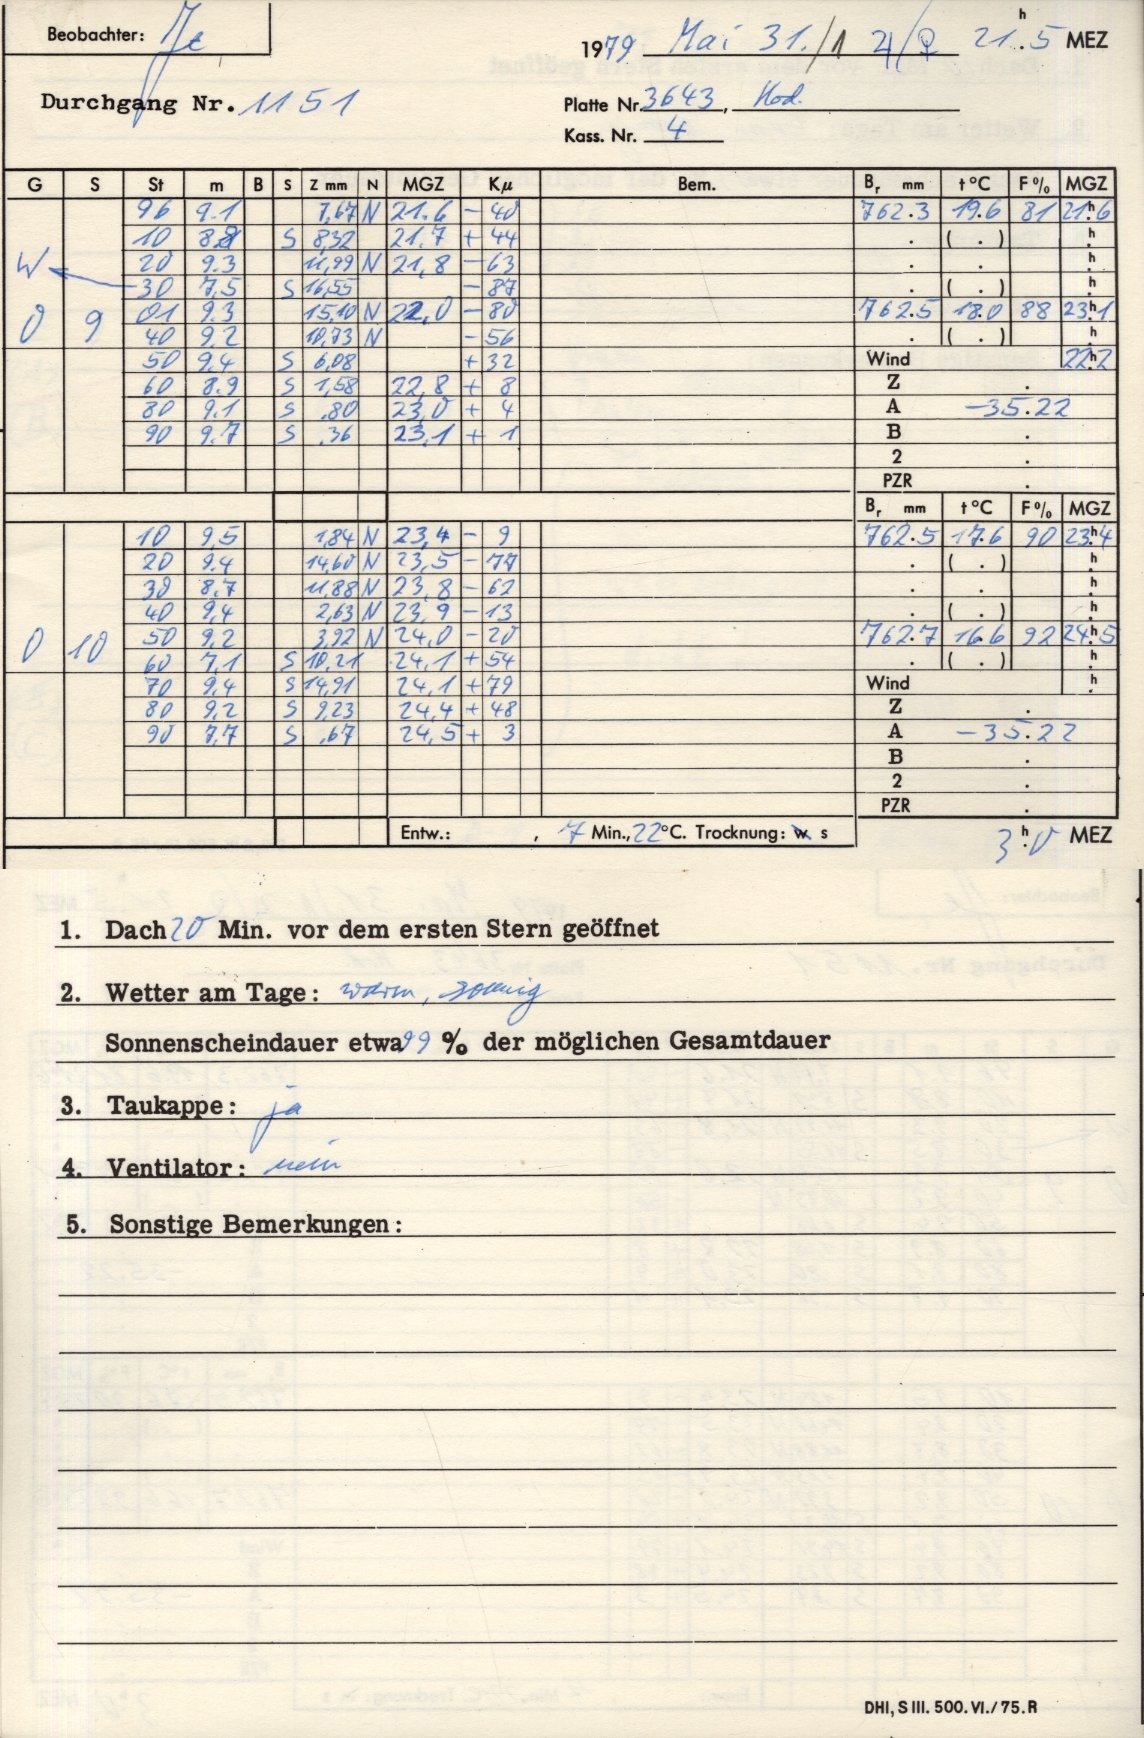 Beobachter: Je
1979 Mai 31./1 ♃/♀ 21.ʰ5 MEZ
Durchgang Nr. 1151
Platte Nr. 3643, Kod.
Kass. Nr. 4
G S St m B S Z mm N MGZ Kμ Bem. Bᵣ mm t °C F % MGZ
96 9.1 7,67 N 21.6 – 40 762.3 19.6 81 21ʰ.6
10 8.8 S 8,32 21.7 + 44 . ( . ) .ʰ
W 20 9.3 11,99 N 21,8 – 63 . . .ʰ
30 7.5 S 16,55 – 87 . ( . ) .ʰ
0 9 01 9.3 15,10 N 22,0 – 80 762.5 18.0 88 23ʰ.1
40 9,2 10,73 N – 56 . ( . ) .ʰ
50 9,4 S 6,08 + 32 Wind 22ʰ.2
60 8.9 S 1,58 22,8 + 8 Z .
80 9.1 S .80 23,0 + 4 A –35.22
90 9.7 S .36 23,1 + 1 B .
2 .
PZR .
Bᵣ mm t °C F % MGZ
10 9,5 1,84 N 23,4 – 9 762.5 17.6 90 23ʰ.4
20 9.4 14,60 N 23,5 – 77 . ( . ) .ʰ
30 8,7 11,88 N 23,8 – 62 . . .ʰ
40 9,4 2,63 N 23,9 – 13 . ( . ) .ʰ
0 10 50 9,2 3,92 N 24,0 – 20 762.7 16.6 92 24ʰ.5
60 7,1 S 10,21 24,1 + 54 . ( . ) .ʰ
70 9,4 S 14,91 24,1 + 79 Wind .ʰ
80 9,2 S 9,23 24,4 + 48 Z .
90 7,7 S ,67 24,5 + 3 A –35.22
B .
2 .
PZR .
Entw.: , 7 Min., 22 °C. Trocknung: w s
3.ʰ0 MEZ
1. Dach 20 Min. vor dem ersten Stern geöffnet
2. Wetter am Tage: warm, sonnig
Sonnenscheindauer etwa 99 % der möglichen Gesamtdauer
3. Taukappe: ja
4. Ventilator: nein
5. Sonstige Bemerkungen:
DHI, S III. 500. VI./75. R